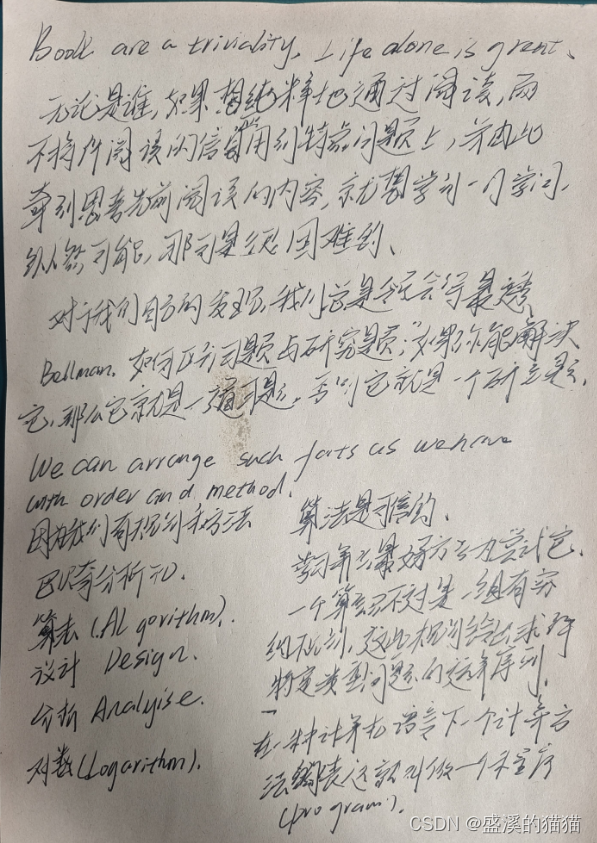 Book are a triviality. Life alone is great.
无论是谁,如果想纯粹地通过阅读,而
不将所阅读的信息用到特定问题上,并由此
牵引思考先前阅读的内容,就想学到一门学问,
纵然可能,那可是会很困难的、
对于我们自己的发现,我们总是会得最透
Bellman. 如何区别习题与研究题:“如果你能解决
它,那么它就是一道习题,否则它就是一个研究题.
We can arrange such facts as we have
with order and method.
因为我们有规则和方法
区分分析
算法(ALgorithm).
设计 Design.
分析 Analyise.
对数(Logarithm).
算法是可信的.
学习算法最好方法为尝试它.
一个算法不过是一组有穷
的规则,这些规则给出求解
特定类型问题的运算序列.
在一种计算机语言下一个计算方
法的表达就叫做一个程序
(program).
CSDN @盛溪的猫猫